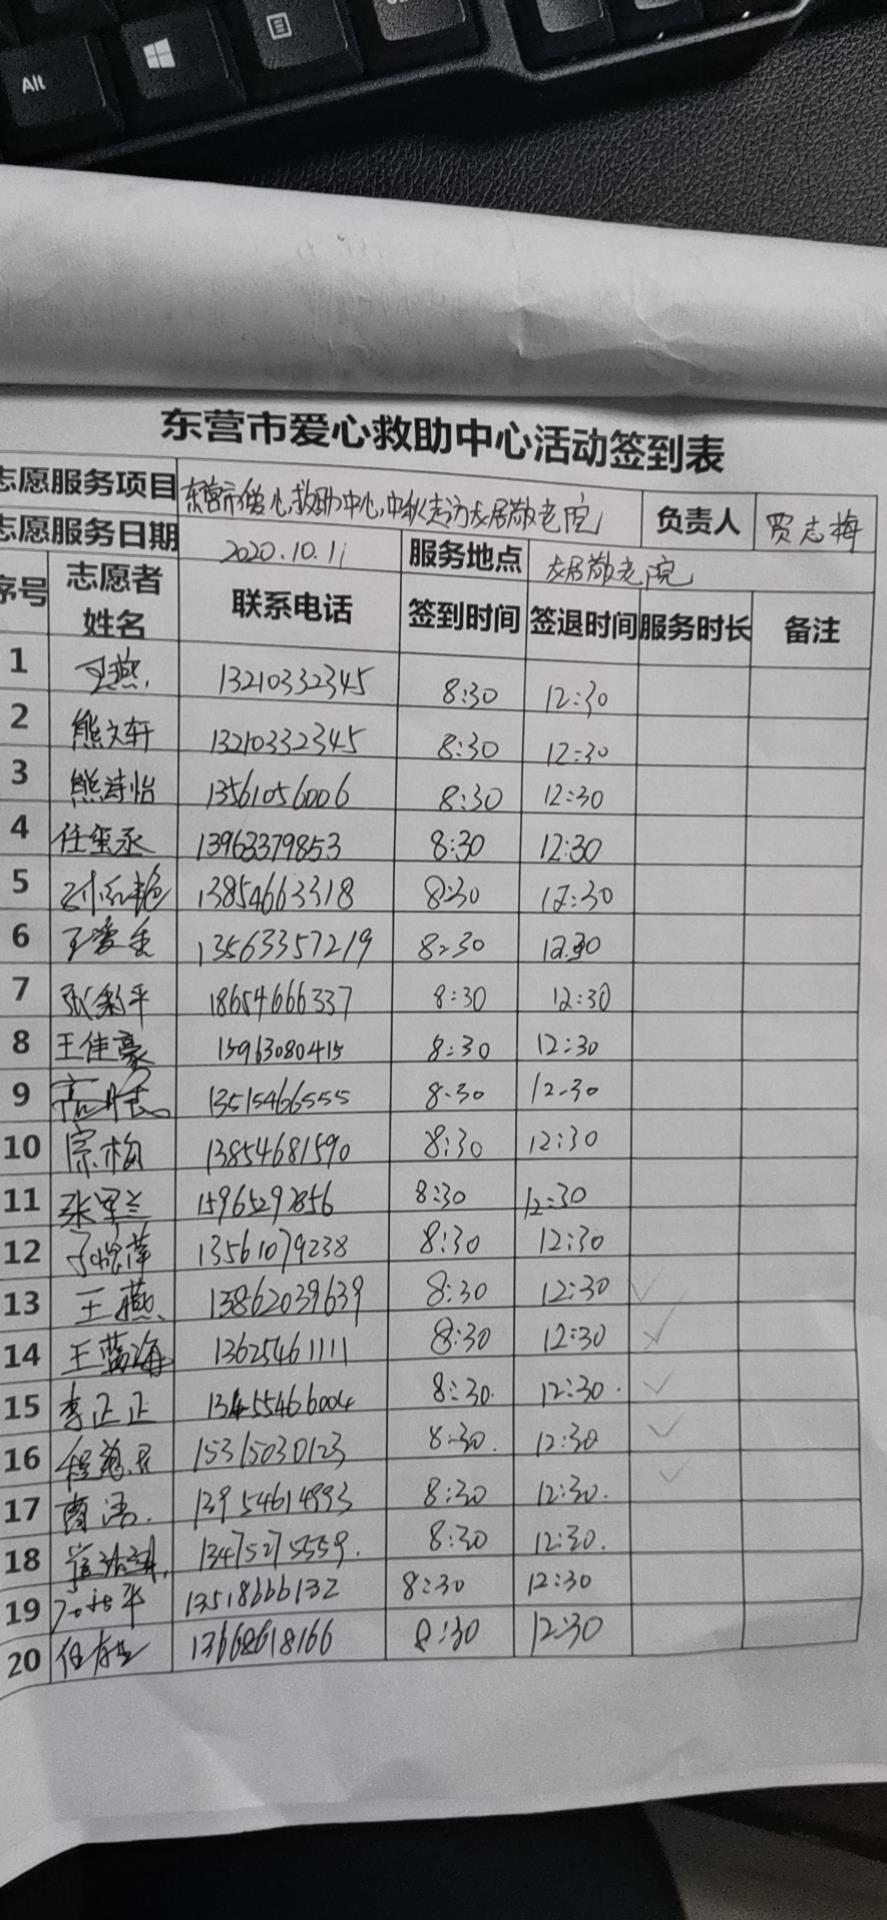 Alt
东营市爱心救助中心活动签到表
志愿服务项目 东营市爱心救助中心中秋走访友居敬老院 负责人 贾志梅
志愿服务日期 2020.10.1 服务地点 友居敬老院
序号 志愿者姓名 联系电话 签到时间 签退时间 服务时长 备注
1 王燕 13210332345 8:30 12:30
2 熊文轩 13210332345 8:30 12:30
3 熊诗怡 13561056006 8:30 12:30
4 任玺丞 13963379853 8:30 12:30
5 孙红艳 13854663318 8:30 12:30
6 王爱香 13563357219 8:30 12:30
7 张彩平 18654666337 8:30 12:30
8 王佳豪 15963080415 8:30 12:30
9 13515466555 8:30 12:30
10 宗梅 13854681590 8:30 12:30
11 张军兰 15965292856 8:30 12:30
12 13561079238 8:30 12:30
13 王燕 13862039639 8:30 12:30 ✓
14 王蓝海 13625461111 8:30 12:30 ✓
15 李正正 13455466004 8:30 12:30 ✓
16 15315030123 8:30 12:30 ✓
17 曹洁 13954614993 8:30 12:30 ✓
18 13475275559 8:30 12:30
19 13518666132 8:30 12:30
20 13668618166 8:30 12:30